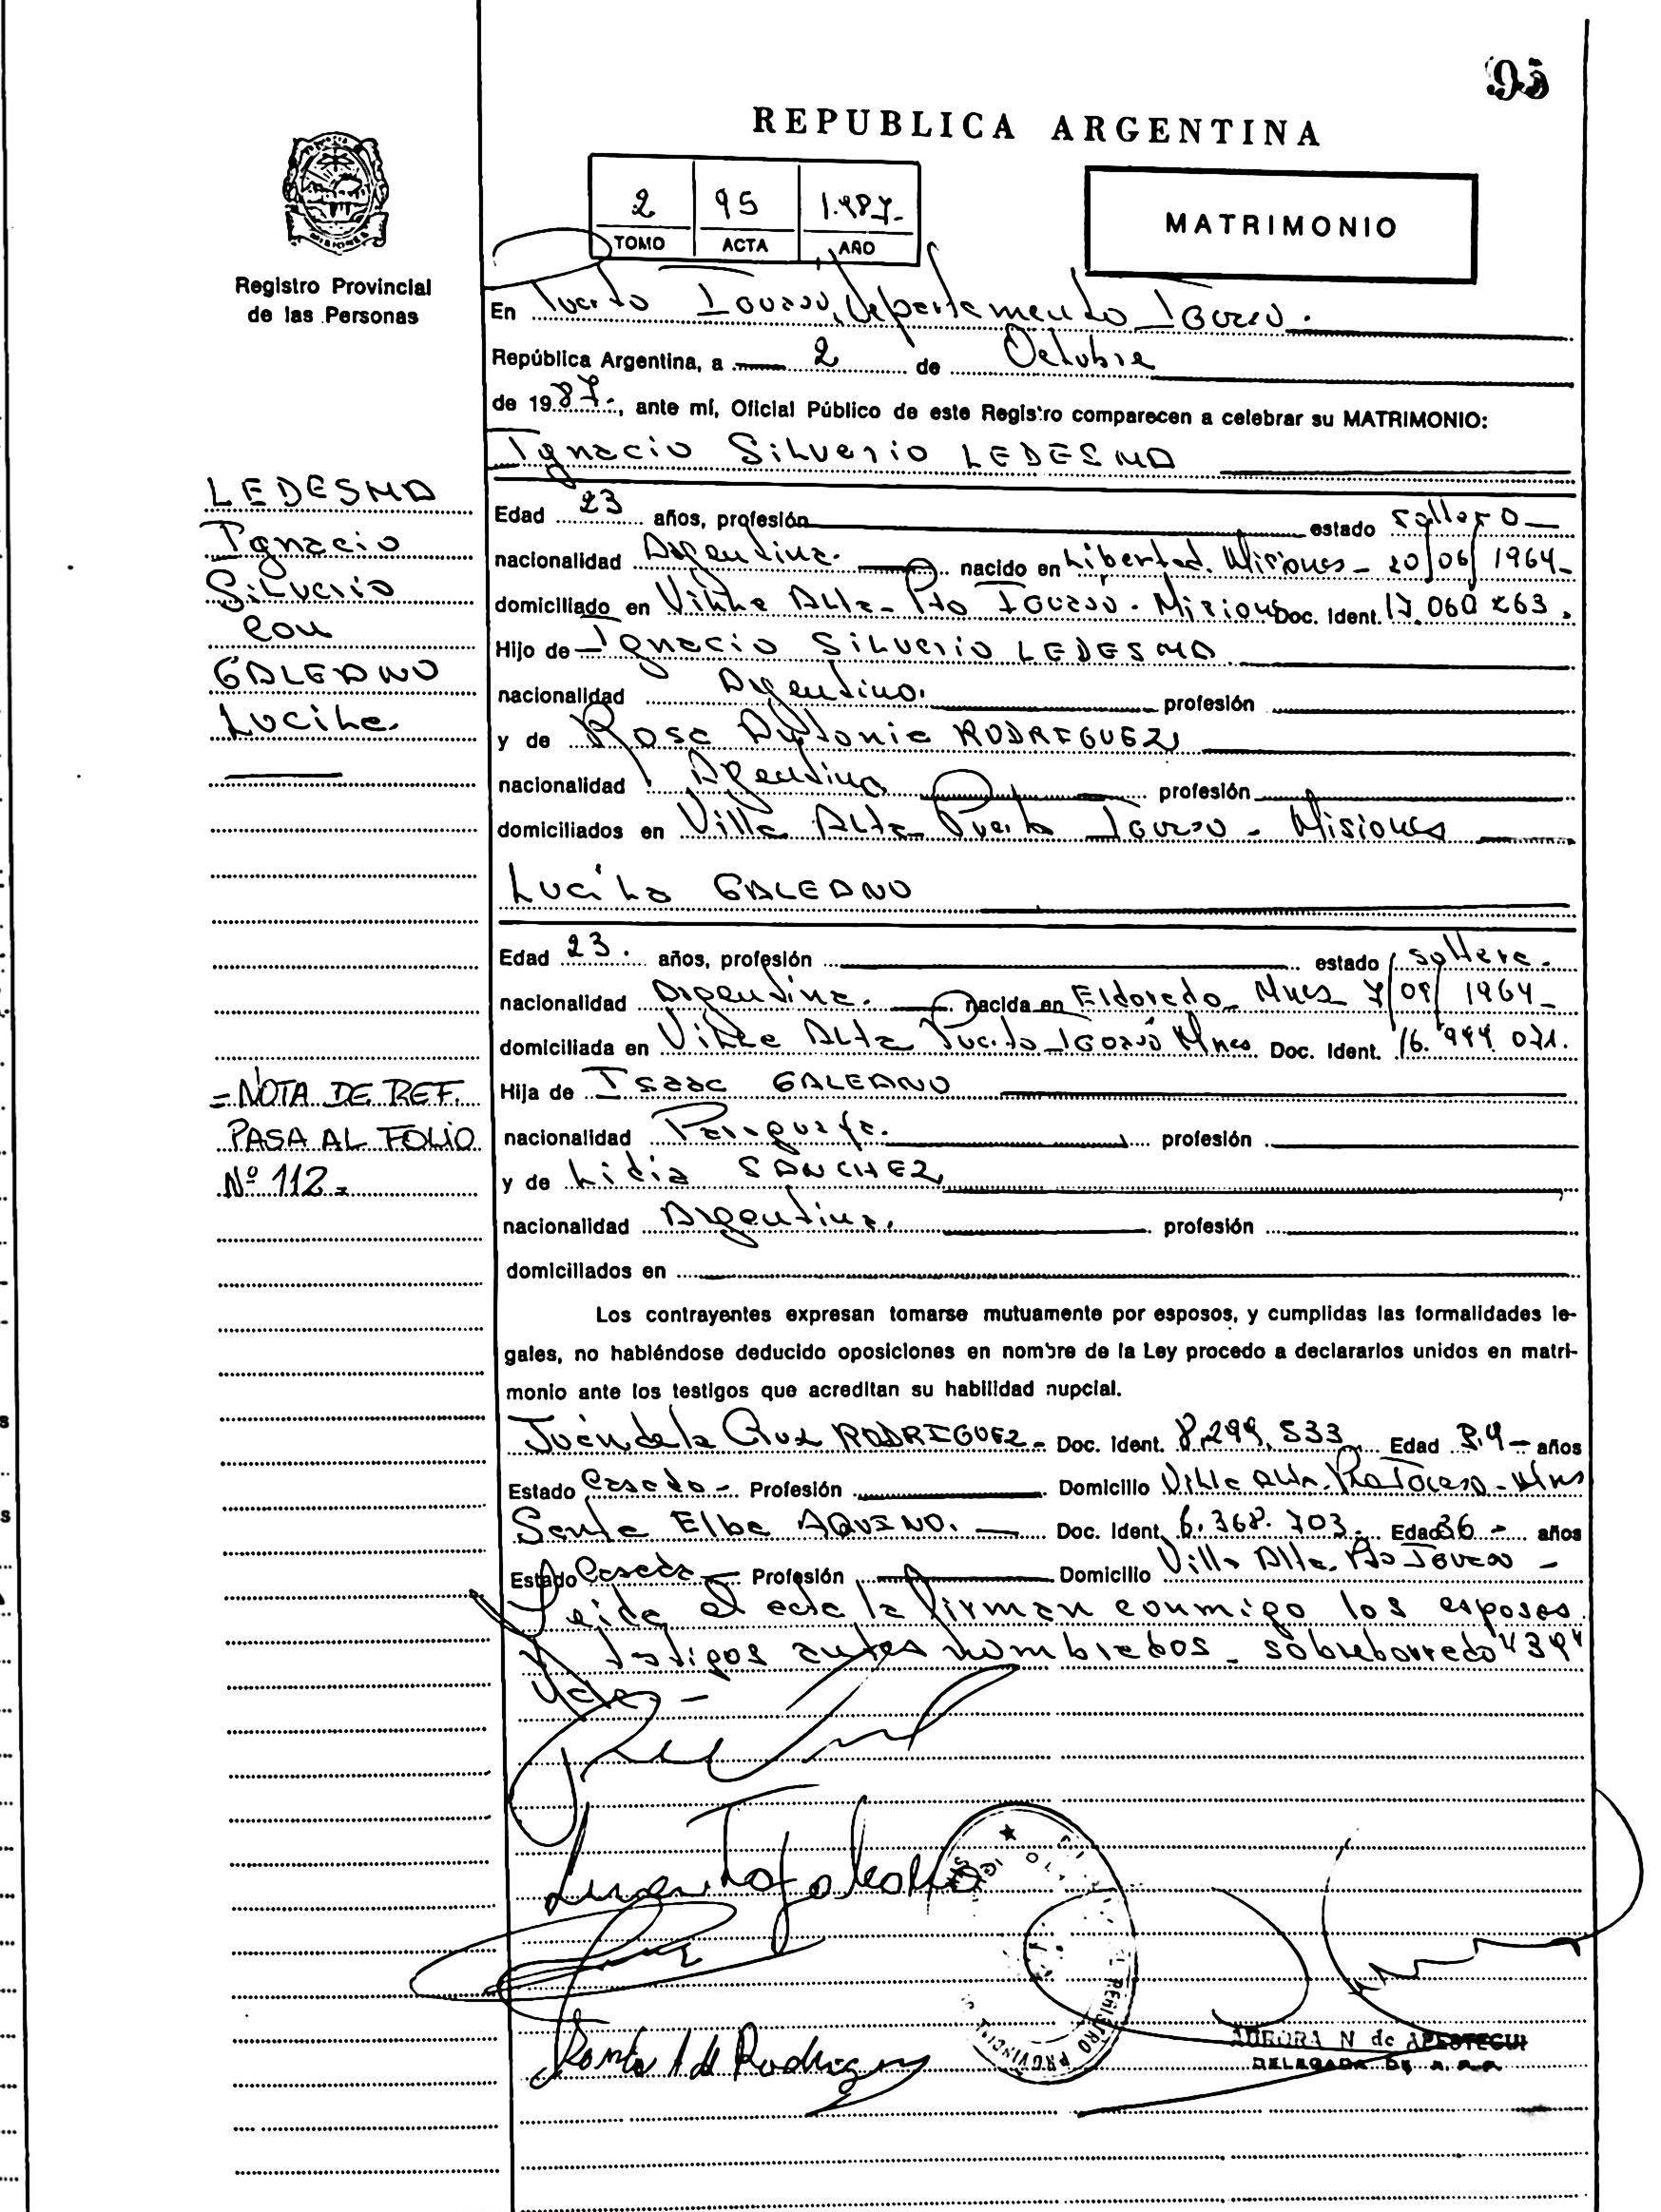 95
REPUBLICA ARGENTINA
2 95 1.987.-
TOMO ACTA AÑO
MATRIMONIO
Registro Provincial
de las Personas
En Puerto Iguazú, departamento Iguazú.
República Argentina, a 2 de Octubre
de 1987.-, ante mí, Oficial Público de este Registro comparecen a celebrar su MATRIMONIO:
Ignacio Silverio LEDESMA
LEDESMA
Ignacio
Silverio
con
GALEANO
Lucila
Edad 23 años, profesión estado soltero
nacionalidad Argentina. nacido en Libertad. Misiones - 20/06/1964-
domiciliado en Villa Alta - Pto Iguazú - Misiones Doc. Ident. 17.060.263.
Hijo de Ignacio Silverio LEDESMA
nacionalidad Argentino. profesión
y de Rosa Antonia RODRIGUEZ,
nacionalidad Argentina profesión
domiciliados en Villa Alta - Puerto Iguazú - Misiones
Lucila GALEANO
Edad 23. años, profesión estado soltera.
nacionalidad Argentina. nacida en Eldorado - Mnes 7/09/1964-
domiciliada en Villa Alta Puerto Iguazú Mnes Doc. Ident. 16. 071.
Hija de Isaac GALEANO
nacionalidad Paraguaya. profesión
y de Lidia SANCHEZ,
nacionalidad Argentina. profesión
domiciliados en
= NOTA DE REF.
PASA AL FOLIO
Nº 112 =
Los contrayentes expresan tomarse mutuamente por esposos, y cumplidas las formalidades le-
gales, no habiéndose deducido oposiciones en nombre de la Ley procedo a declararlos unidos en matri-
monio ante los testigos que acreditan su habilidad nupcial.
Juan de la Cruz RODRIGUEZ - Doc. Ident. 8.299.533 Edad 39 - años
Estado Casado - Profesión Domicilio Villa Alta. Pto Iguazú - Mnes
Santa Elba AQUINO. - Doc. Ident. 6.368.703. Edad 36 - años
Estado Casada Profesión Domicilio Villa Alta. Pto Iguazú -
Leída el acta la firman conmigo los esposos
y testigos antes nombrados - sobreborrado "39"
Vale. -
REGISTRO PROVINCIAL
AURORA N de APESTEGUI
DELEGADA DE R. P. P.